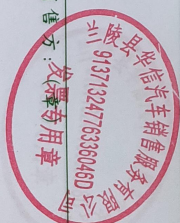 兰陵县华信汽车销售服务有限公司
91371324776333046D
发票专用章
售方:(章)